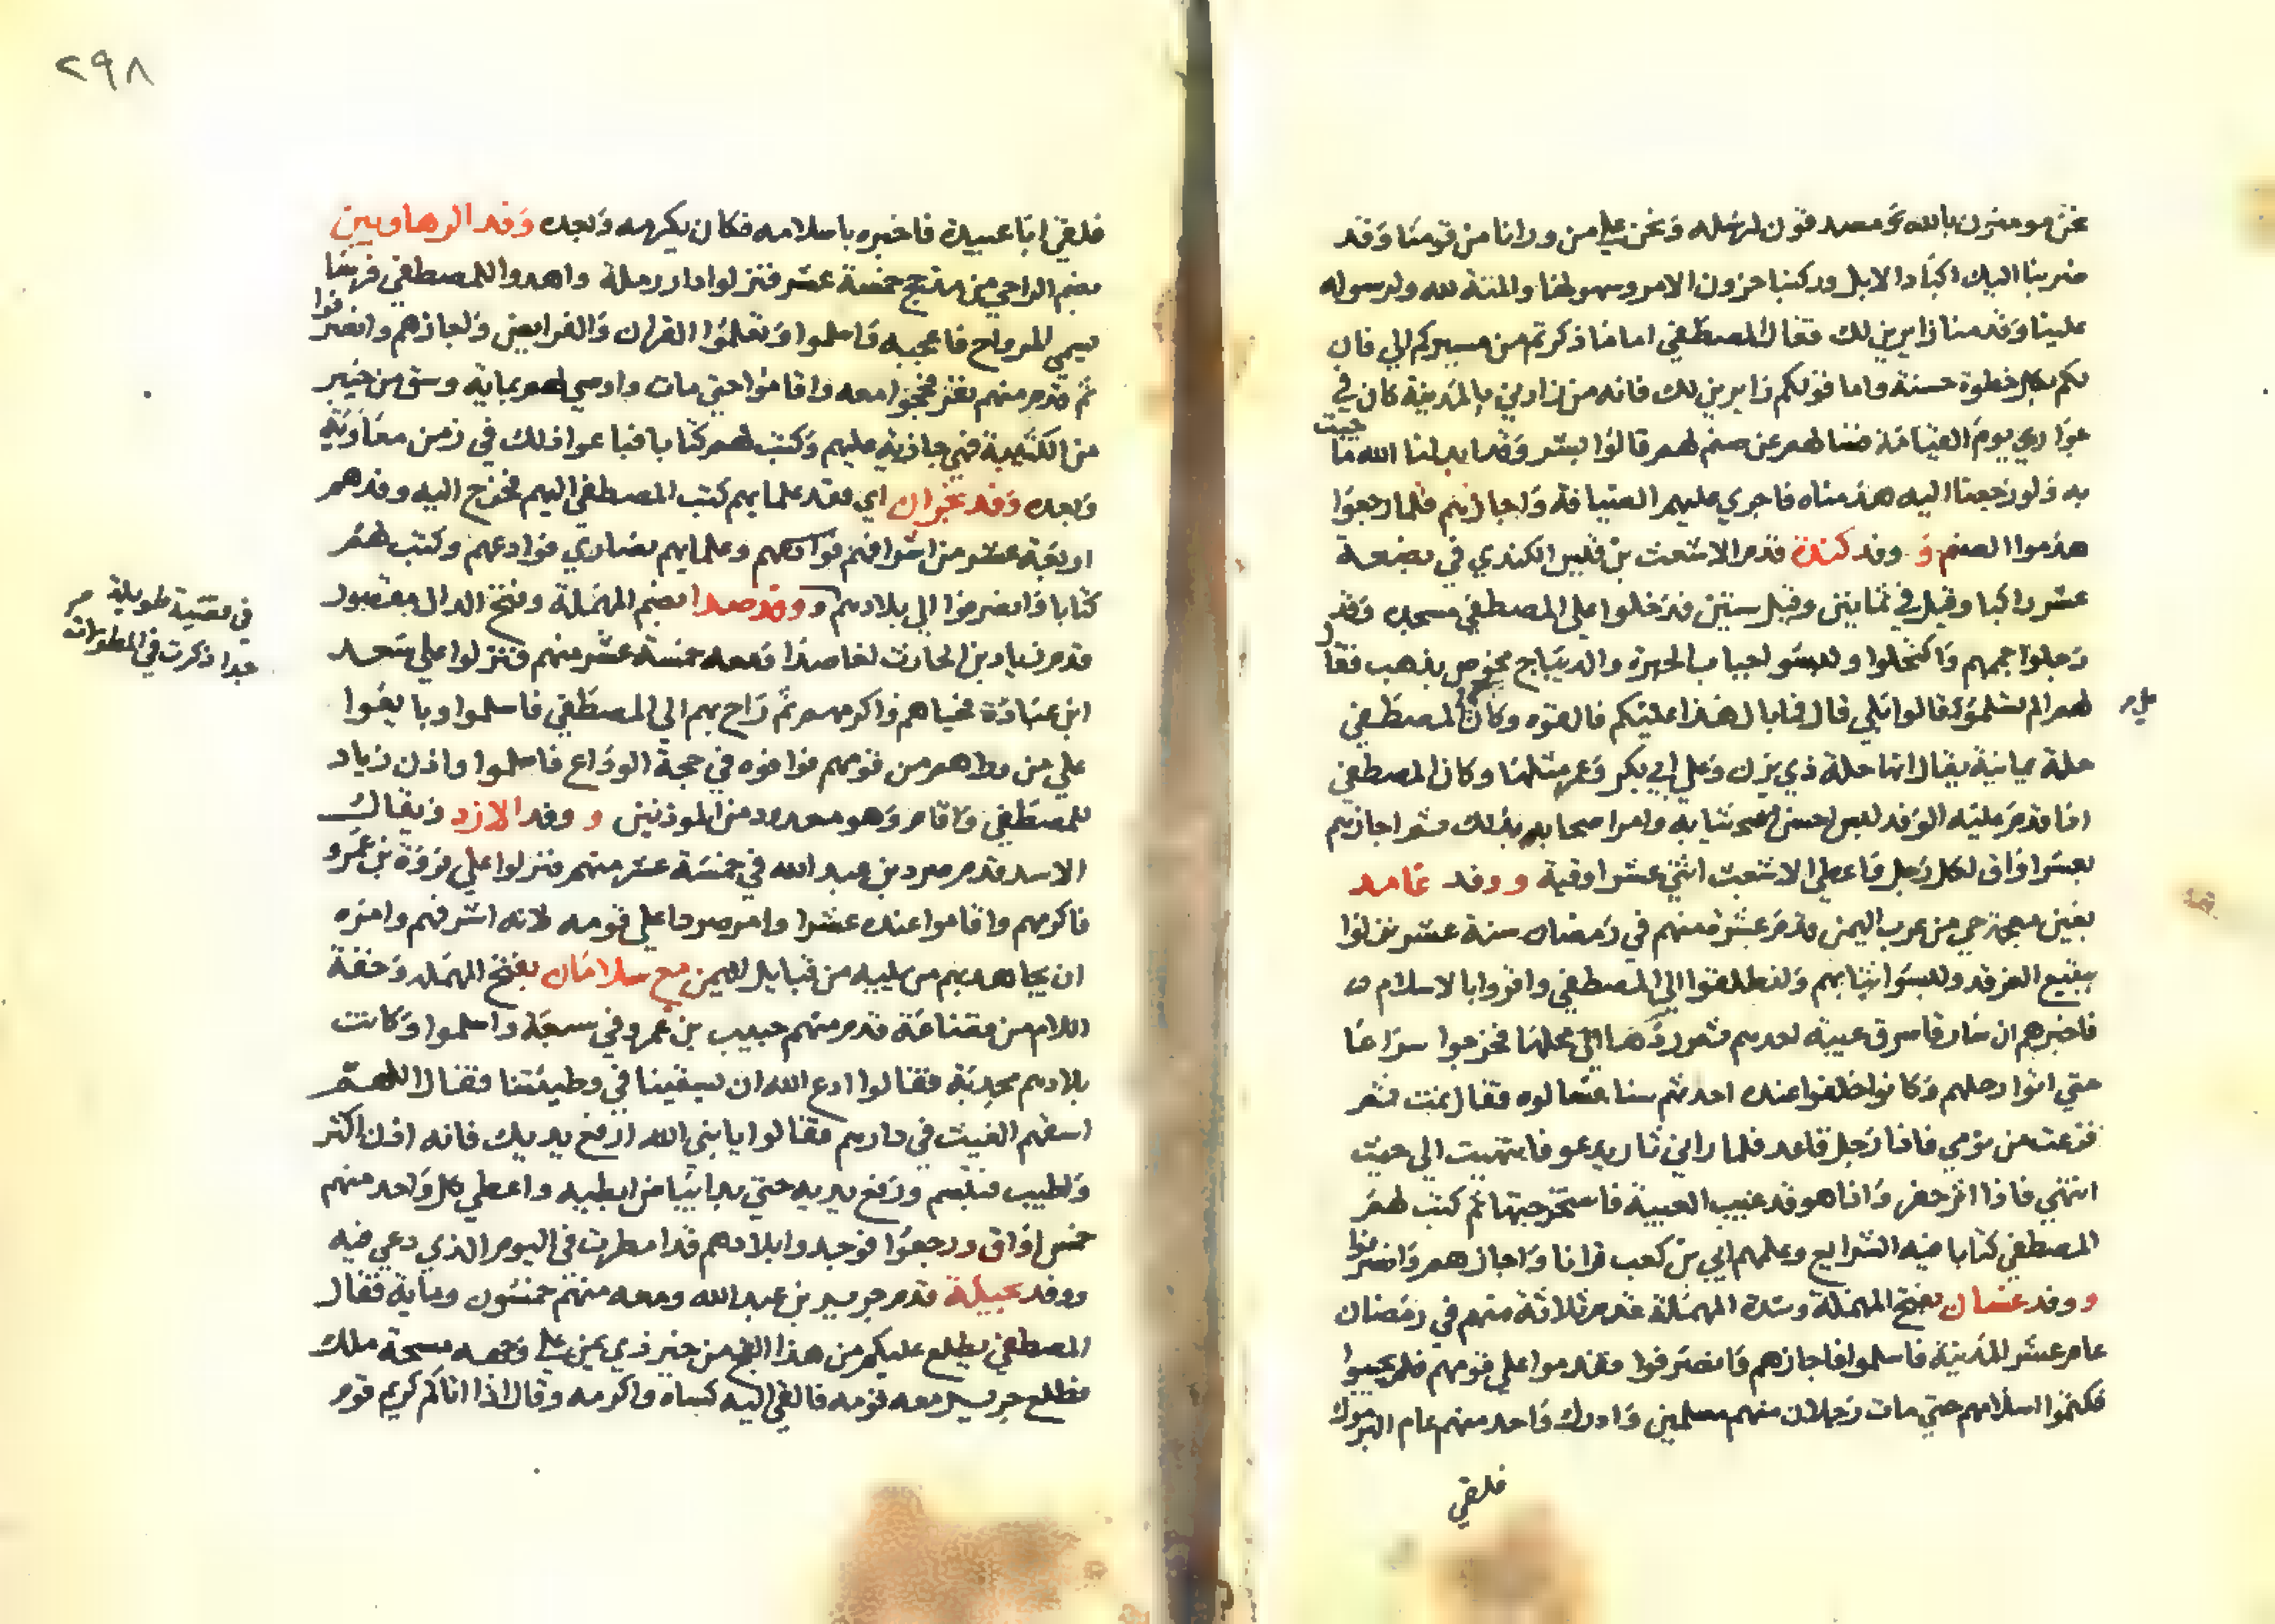 نحن مومنون بالله ومصدقون لرسله ونحن علي من ورانا من قومنا وقد
ضربنا اليك اكباد الابل وركبنا حزون الامر وسهولها والمنة لله ولرسوله
علينا وقدمنا زايرين لك فقال المصطفي اما ما ذكرتم من مسيركم الي فان
لكم بكل خطوة حسنة واما قولكم زايرين لك فانه من زارني بالمدينة كان في
جواري يوم القيامة لهم عن صنم لهم قالوا بشر وقد ابدلنا الله ما جيت
به ولو رجعنا اليه هدمناه فاجري عليهم الضيافة واجازهم فلما رجعوا
هدموا الصنم و وفد كندة قدم الاشعث بن قيس الكندي في بضعة
عشر راكبا وقيل في ثمانين وقيل ستين فدخلوا علي المصطفي مسجده وقد
رجلوا جممهم واكتحلوا ولبسوا جباب الحبرة والديباج مخوص بذهب فقال
لهم الم تسلموا قالوا بلي قال فما بال هذا عليكم فالقوه وكان علي المصطفي
حلة يمانية يقال انها حلة ذي يزن وعلي ابي بكر وعمر مثلها وكان المصطفي
اذا قدم عليه الوفد لبس احسن ثيابه وامر اصحابه بذلك ثم اجازهم
بعشر اواق لكل رجل واعطي الاشعث اثني عشر اوقية و وفد غامد
بغين معجمة حي من عرب اليمن قدم عشرة منهم في رمضان سنة عشر فنزلوا
ببقيع الغرقد ولبسوا ثيابهم وانطلقوا الي المصطفي واقروا بالاسلام
فاخبرهم ان سارقا سرق عيبة احدهم ثم ردها الي محلها فخرجوا سراعا
حتي اتوا رحلهم وكانوا خلفوا عنده احدثهم سنا فسالوه فقال نمت ثم
فزعت من نومي فاذا رجل قاعد فلما راني ثار يعدو فانتهيت الي حيث
انتهي فاذا اثر حفر واذا هو قد غيب العيبة فاستخرجتها ثم كتب لهم
المصطفي كتابا فيه الشرايع وعلمهم ابي بن كعب قرانا واجازهم وانصرفوا
و وفد غسان بفتح المهملة وشدة المهملة قدم ثلاثة منهم في رمضان
عام عشر المدينة فاسلموا فاجازهم وانصرفوا فقدموا علي قومهم فلم يجيبوا
فكتموا اسلامهم حتي مات رجلان منهم مسلمين وادرك واحد منهم عام اليرموك
فلقي
٢٩٨
فلقي ابا عبيدة فاخبره باسلامه فكان يكرمه وبعده وفد الرهاويين
بضم الراحي من مذحج خمسة عشر فنزلوا دار رملة واهدوا للمصطفي فرسا
يسمي المرواح فاعجبه فاسلموا وتعلموا القران والفرايض واجازهم وانصرفوا
ثم قدم منهم نفر فحجوا معه واقاموا حتي مات واوصي لهم بماية وسق من خيبر
من الكتيبة جارية عليهم وكتب لهم كتابا فباعوا ذلك في زمن معاوية
وبعده وفد نجران اي بعد كتب المصطفي اليهم فخرج اليه وفدهم
اربعة عشر من اشرافهم وعلمايهم نصاري فوادعهم وكتب لهم
كتابا وانصرفوا الي بلادهم ووفد صدا بضم المهملة وفتح الدال مقصور
قدم زياد بن الحارث خمسة عشر منهم فنزلوا علي سعد
ابن عبادة فحياهم واكرمهم ثم راح بهم الي المصطفي فاسلموا وبايعوا
علي من وراهم من قومهم فوافوه في حجة الوداع فاسلموا واذن زياد
للمصطفي واقام وهو معدود من الموذنين و وفد الازد ويقال
الاسد قدم صرد بن عبد الله في خمسة عشر منهم فنزلوا علي فروة بن عمرو
فاكرمهم واقاموا عنده عشرا وامر صردا علي قومه لانه اشرفهم وامره
ان يجاهد بهم من يليه من قبايل اليمن مع سلامان بفتح المهملة وخفة
اللام من قضاعة قدم منهم حبيب بن عمرو في سبعة واسلموا وكانت
بلادهم مجدبة فقالوا ادع الله ان يسقينا في وطينتنا فقال اللهم
اسقهم الغيث في دارهم فقالوا يا نبي الله ارفع يديك فانه اكثر
واطيب فتبسم ورفع يديه حتي بدا بياض ابطيه واعطي كل واحد منهم
خمس اواق ورجعوا فوجدوا بلادهم قد امطرت في اليوم الذي دعي فيه
ووفد بجيلة قدم جرير بن عبد الله ومعه منهم خمسون وماية فقال
المصطفي يطلع عليكم من هذا الفج من خير ذي يمن علي وجهه مسحة ملك
فطلع جرير معه قومه فالقي اليه كساه واكرمه وقال اذا اتاكم كريم قوم
في قصة طويلة
جدا ذكرت في المطولات